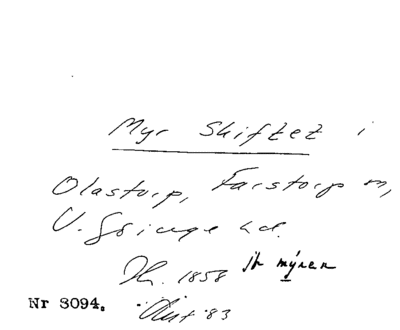 Myr Skiftet i
Olastorp, Farstorps sn,
V. Göinge hd.
Jb. 1858 jb mýren
Nr 3094. Akt '83